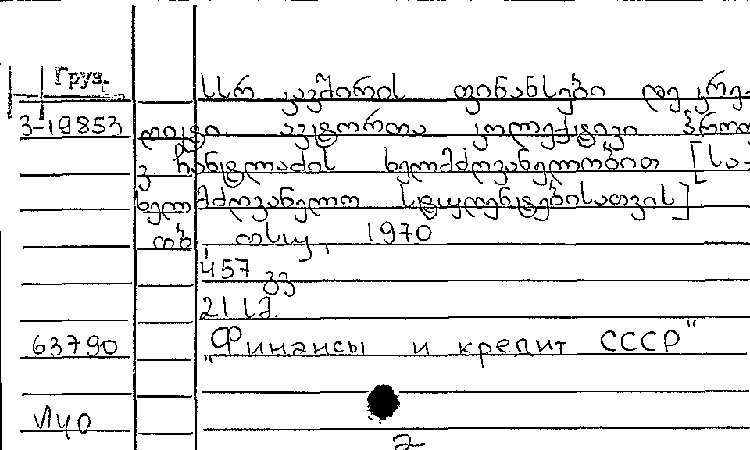 Груз.
სსრ კავშირის ფინანსები და კრე-
3-19853 დიტი. ავტორთა კოლექტივი პროფ
ვ. ჩანტლაძის ხელმძღვანელობით [სა-
ხელმძღვანელო სტუდენტებისათვის]
თბ. თსუ, 1970
457 გვ
21 სმ
63790 "Финансы и кредит СССР"